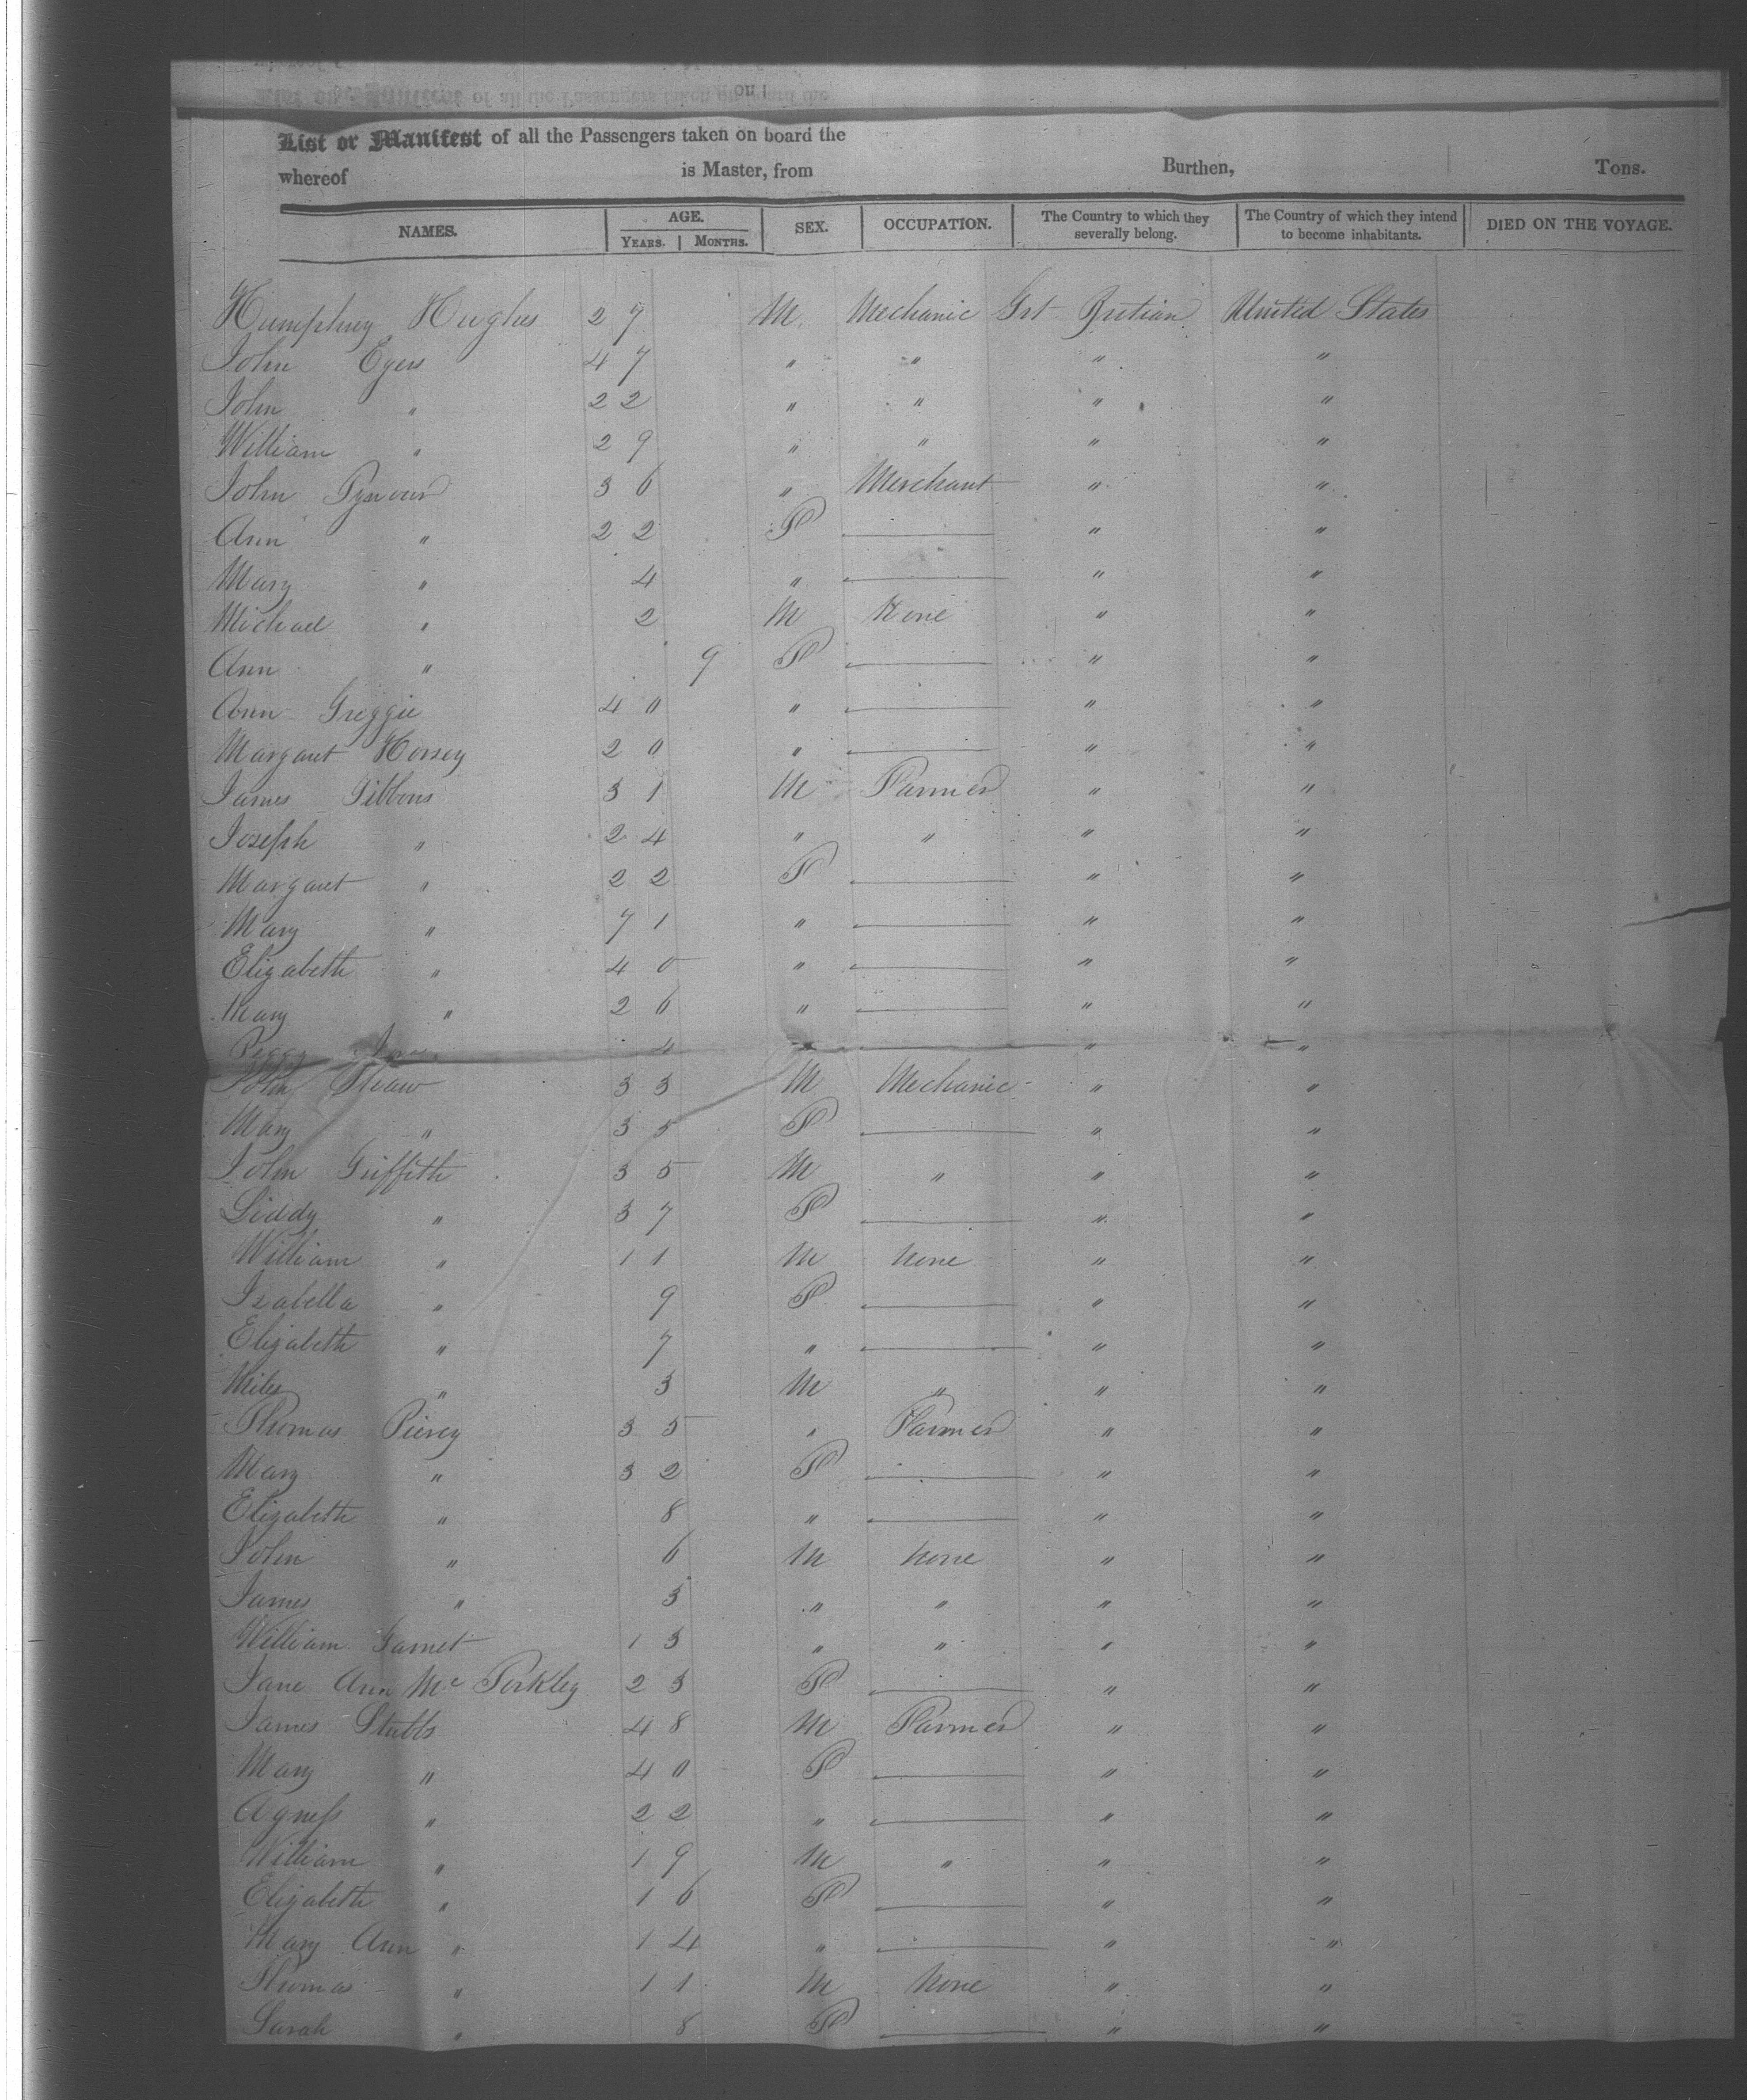 List or Manifest of all the Passengers taken on board the
whereof is Master, from Burthen, Tons.
NAMES. AGE. YEARS. MONTHS. SEX. OCCUPATION. The Country to which they severally belong. The Country of which they intend to become inhabitants. DIED ON THE VOYAGE.
Humphrey Hughes 27 M. Mechanic Grt Britian United States
John Egers 47 " " " "
John " 22 " " " "
William " 29 " " " "
John 36 " Merchant " "
Ann " 22 F " "
Mary " 4 " " "
Michael " 2 M None " "
Ann " 9 F " "
Ann Greggie 40 " " "
Margaret Horsey 20 " " "
James Gibbons 31 M Farmer " "
Joseph " 24 " " " "
Margaret " 22 F " "
Mary " 71 " " "
Elizabeth " 40 " " "
Mary " 26 " " "
Peggy 4 " " "
John Shaw 33 M Mechanic " "
Mary " 35 F " "
John Griffith 35 M " " "
Liddy " 37 F " "
William " 11 M None " "
Izabella " 9 F " "
Elizabeth " 7 " " "
Miles " 3 M " " "
Thomas Piercy 35 " Farmer " "
Mary " 32 F " "
Elizabeth " 8 " " "
John " 6 M None " "
James " 3 " " " "
William Garnet 13 " " " "
Jane Ann Mc 23 F " "
James Stubbs 48 M Farmer " "
Mary " 40 F " "
Agness " 22 " " "
William " 19 M " " "
Elizabeth " 16 F " "
Mary Ann " 14 " " "
Thomas " 11 M None " "
Sarah " 8 F " "